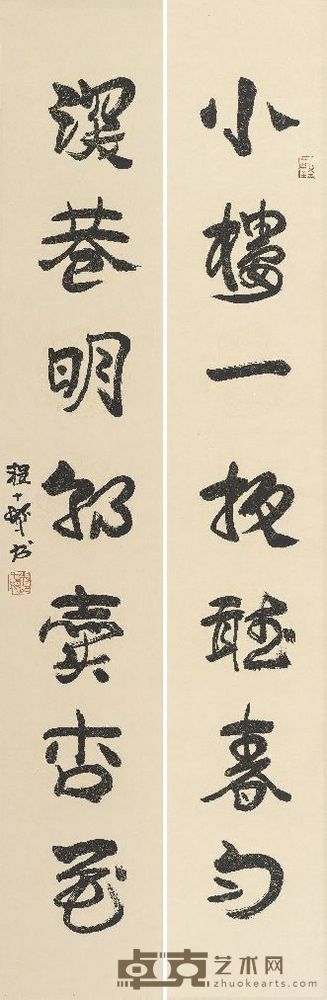 小樓一夜聽春雨
深巷明朝賣杏花
程十髮书
卓克艺术网
www.zhuokearts.com